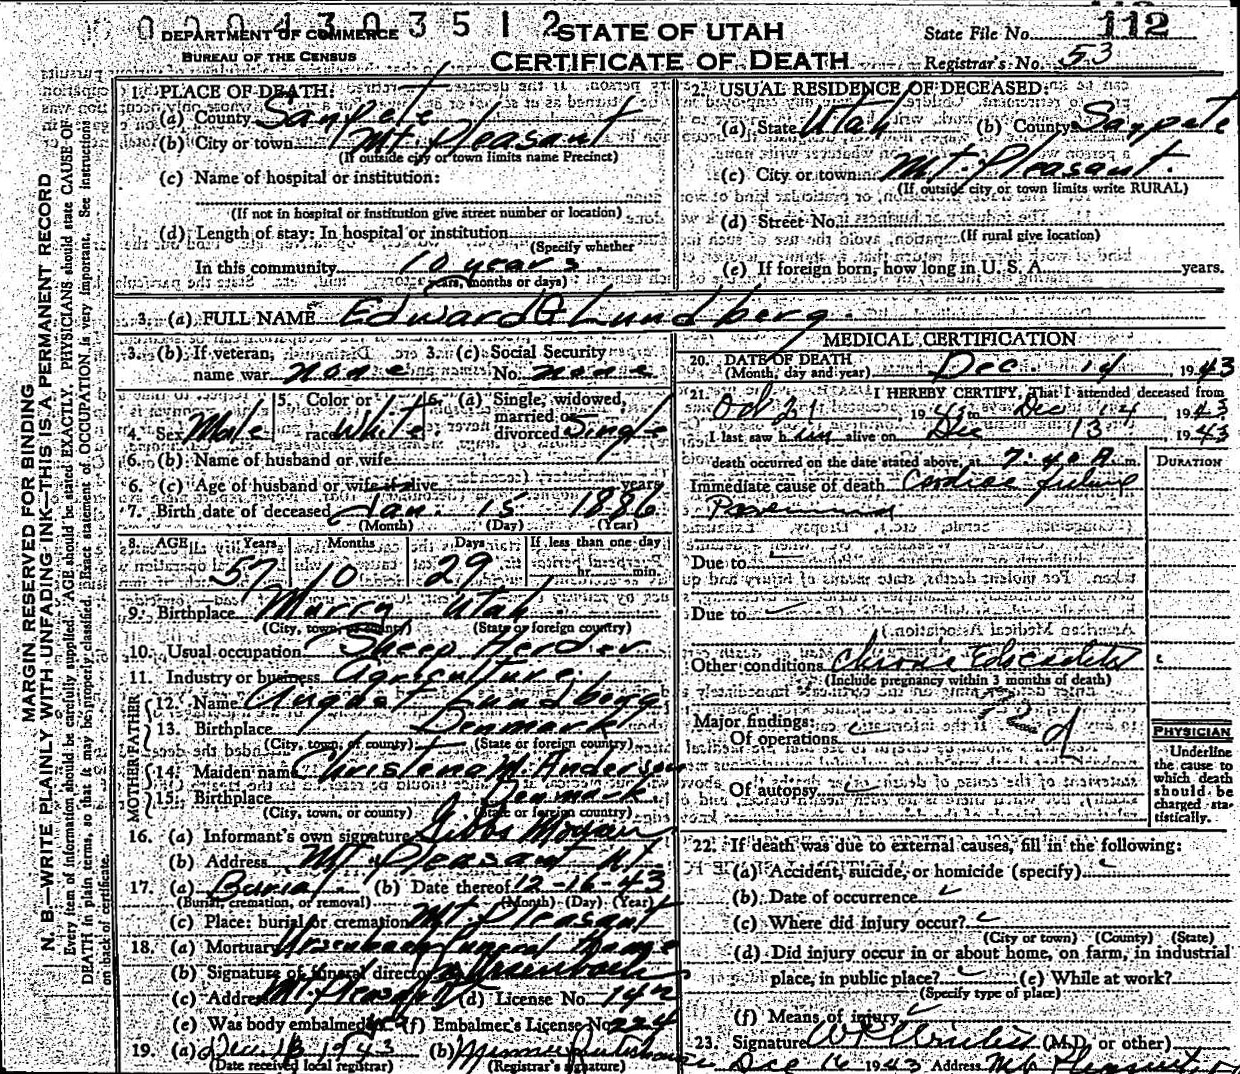 0 0 0 4 3 0 3 5 1 2
DEPARTMENT OF COMMERCE
BUREAU OF THE CENSUS
STATE OF UTAH
CERTIFICATE OF DEATH
State File No. 112
Registrar's No. 53
MARGIN RESERVED FOR BINDING
N. B.—WRITE PLAINLY WITH UNFADING INK—THIS IS A PERMANENT RECORD
Every item of information should be carefully supplied. AGE should be stated EXACTLY. PHYSICIANS should state CAUSE OF
DEATH in plain terms, so that it may be properly classified. Exact statement of OCCUPATION is very important. See instructions
on back of certificate.
1. PLACE OF DEATH:
(a) County Sanpete
(b) City or town Mt. Pleasant
(If outside city or town limits name Precinct)
(c) Name of hospital or institution:
(If not in hospital or institution give street number or location)
(d) Length of stay: In hospital or institution
(Specify whether
In this community 10 years
years, months or days)
2. USUAL RESIDENCE OF DECEASED:
(a) State Utah (b) County Sanpete
(c) City or town Mt. Pleasant
(If outside city or town limits write RURAL)
(d) Street No.
(If rural give location)
(e) If foreign born, how long in U. S. A. years.
3. (a) FULL NAME Edward G Lundberg
3. (b) If veteran, 3. (c) Social Security
name war none No. none
4. Sex Male 5. Color or race White 6. (a) Single, widowed, married or divorced Single
6. (b) Name of husband or wife
6. (c) Age of husband or wife if alive years
7. Birth date of deceased Jan. 15 1886
(Month) (Day) (Year)
8. AGE Years Months Days If less than one day
57 10 29 hr. min.
9. Birthplace Murry Utah
(City, town, or county) (State or foreign country)
10. Usual occupation Sheep Herder
11. Industry or business Agriculture
FATHER
12. Name August Lundberg
13. Birthplace Denmark
(City, town, or county) (State or foreign country)
MOTHER
14. Maiden name Christena M Anderson
15. Birthplace Denmark
(City, town, or county) (State or foreign country)
16. (a) Informant's own signature Gibbs Morgan
(b) Address Mt. Pleasant Ut.
17. (a) Burial (b) Date thereof 12-16-43
(Burial, cremation, or removal) (Month) (Day) (Year)
(c) Place: burial or cremation Mt. Pleasant
18. (a) Mortuary Ursenbach Funeral Home
(b) Signature of funeral director Ursenbach
(c) Address Mt. Pleasant (d) License No. 142
(e) Was body embalmed (f) Embalmer's License No. 224
19. (a) 1943 (b)
(Date received local registrar) (Registrar's signature)
MEDICAL CERTIFICATION
20. DATE OF DEATH
(Month, day and year) Dec. 14, 1943
21. I HEREBY CERTIFY, That I attended deceased from
Oct 21 1943 to Dec 14 1943
I last saw him alive on Dec 13, 1943
death occurred on the date stated above, at 7:40 A. m. DURATION
Immediate cause of death Cardiac failure
Due to
Due to
Other conditions Chronic
(Include pregnancy within 3 months of death)
Major findings:
Of operations
Of autopsy
PHYSICIAN
Underline
the cause to
which death
should be
charged sta-
tistically.
22. If death was due to external causes, fill in the following:
(a) Accident, suicide, or homicide (specify)
(b) Date of occurrence
(c) Where did injury occur?
(City or town) (County) (State)
(d) Did injury occur in or about home, on farm, in industrial
place, in public place? (e) While at work?
(Specify type of place)
(f) Means of injury
23. Signature (M.D. or other)
Dec 16 1943 Address Mt Pleasant